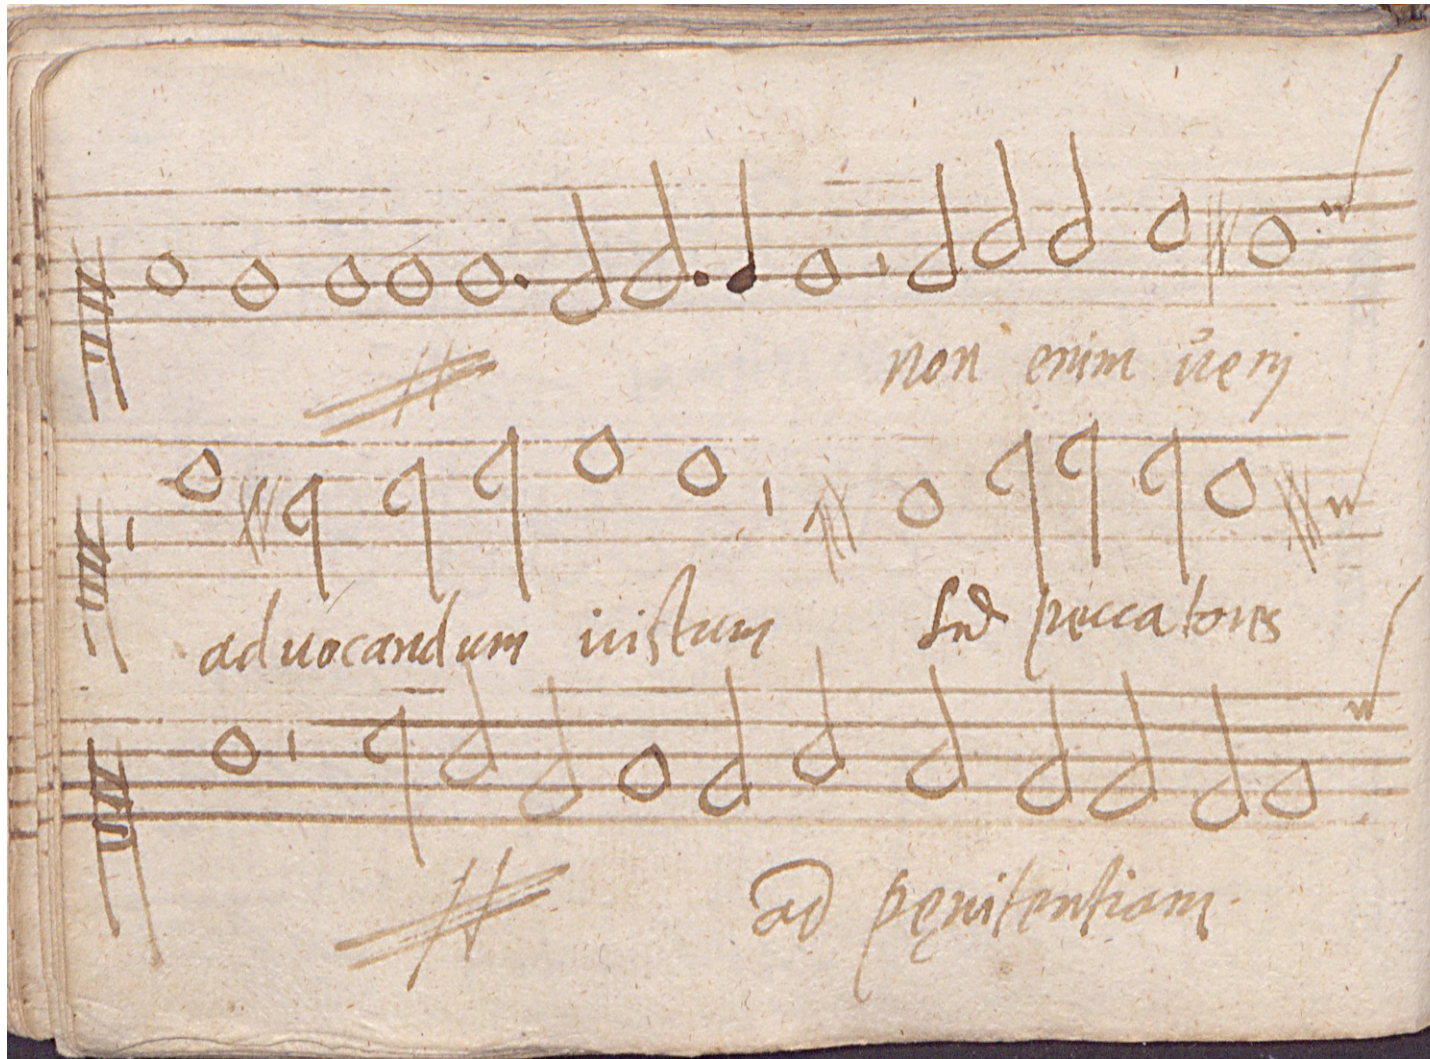 non enim veni
ad vocandum iustum sed peccatores
ad pęnitentiam